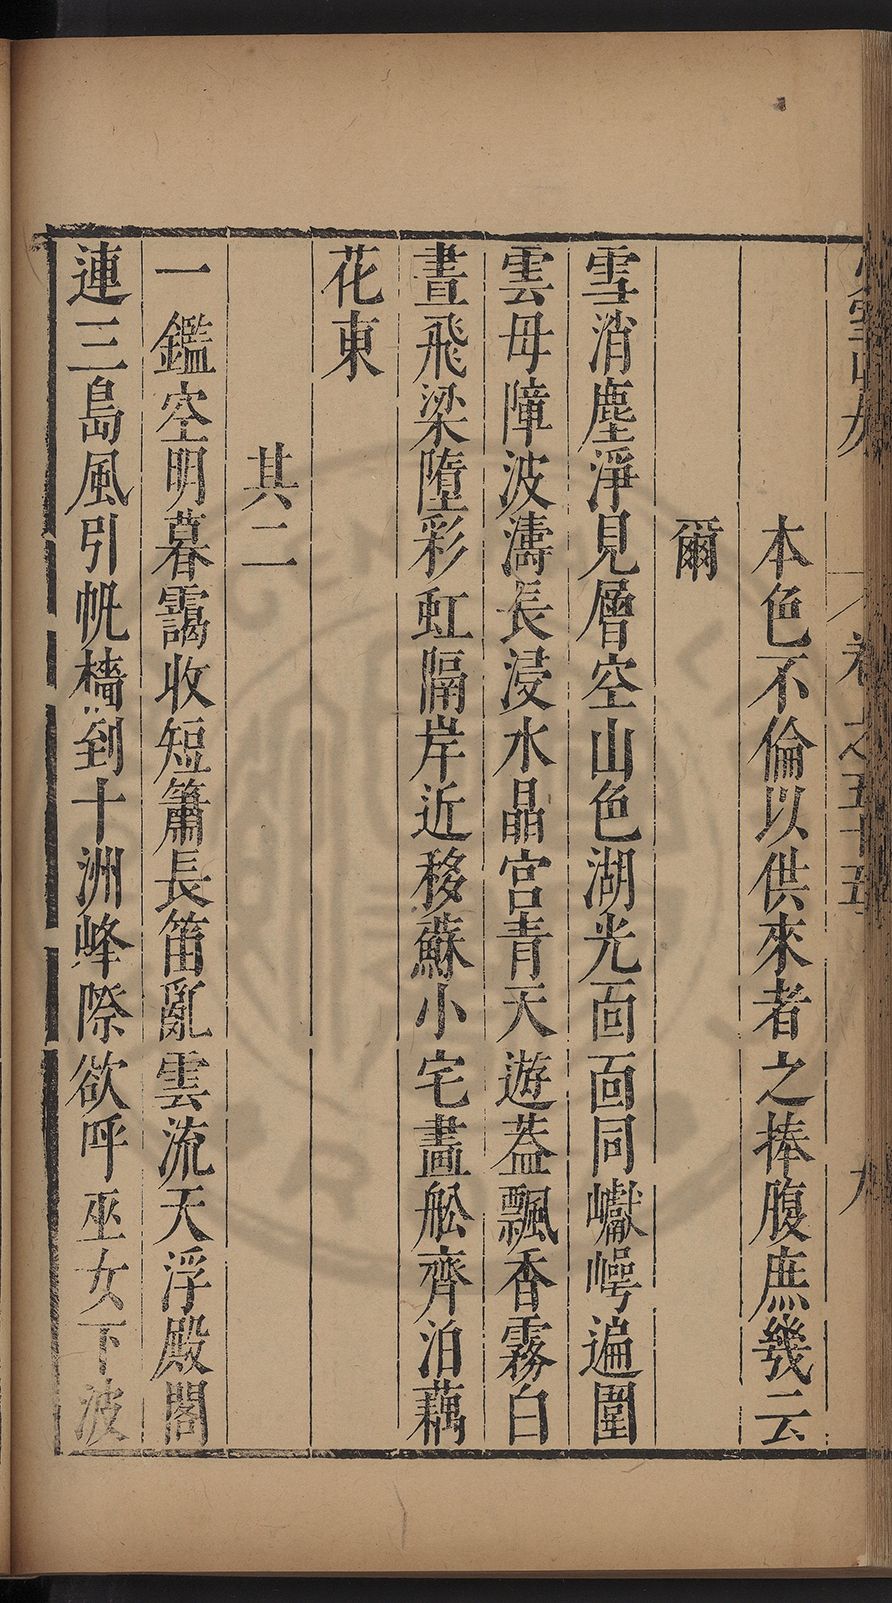 卷之五十五
九
本色不倫以供來者之捧腹庶幾云
爾
雪消塵淨見層空山色湖光面面同巘崿遍圍
雲母障波濤長浸水晶宮青天遊蓋飄香霧白
晝飛梁墮彩虹隔岸近移蘇小宅畫舩齊泊藕
花東
其二
一鑑空明暮靄收短簫長笛亂雲流天浮殿閣
連三島風引帆檣到十洲峰際欲呼巫女下波